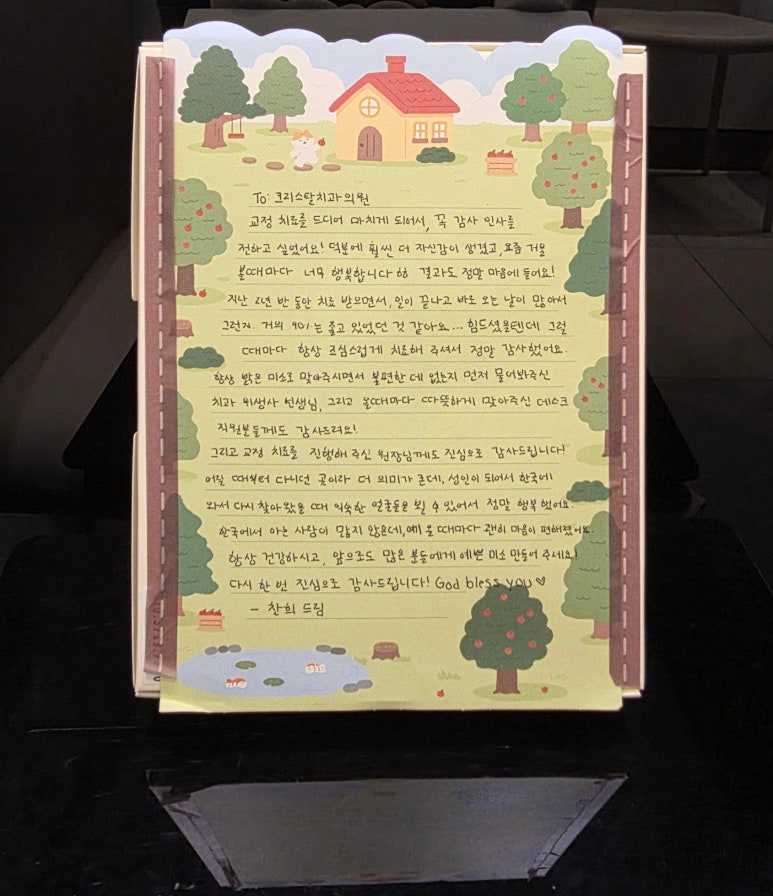 To: 크리스탈치과의원
교정 치료를 드디어 마치게 되어서, 꼭 감사 인사를
전하고 싶었어요! 덕분에 훨씬 더 자신감이 생겼고, 요즘 거울
볼때마다 너무 행복합니다 ㅎㅎ 결과도 정말 마음에 들어요!
지난 2년 반 동안 치료 받으면서, 일이 끝나고 바로 오는 날이 많아서
그런지 거의 90%는 졸고 있었던 것 같아요... 힘드셨을텐데 그럴
때마다 항상 조심스럽게 치료해 주셔서 정말 감사했어요.
항상 밝은 미소로 맞아주시면서 불편한 데 없는지 먼저 물어봐주신
치과 위생사 선생님, 그리고 올때마다 따뜻하게 맞아주신 데스크
직원분들께도 감사드려요!
그리고 교정 치료를 진행해 주신 원장님께도 진심으로 감사드립니다!
어릴 때부터 다니던 곳이라 더 의미가 큰데, 성인이 되어서 한국에
와서 다시 찾아왔을 때 익숙한 얼굴들을 뵐 수 있어서 정말 행복했어요.
한국에서 아는 사람이 많지 않은데, 올 때마다 괜히 마음이 편해졌어요.
항상 건강하시고, 앞으로도 많은 분들에게 예쁜 미소 만들어 주세요!
다시 한 번 진심으로 감사드립니다! God bless you ♡
- 찬희 드림